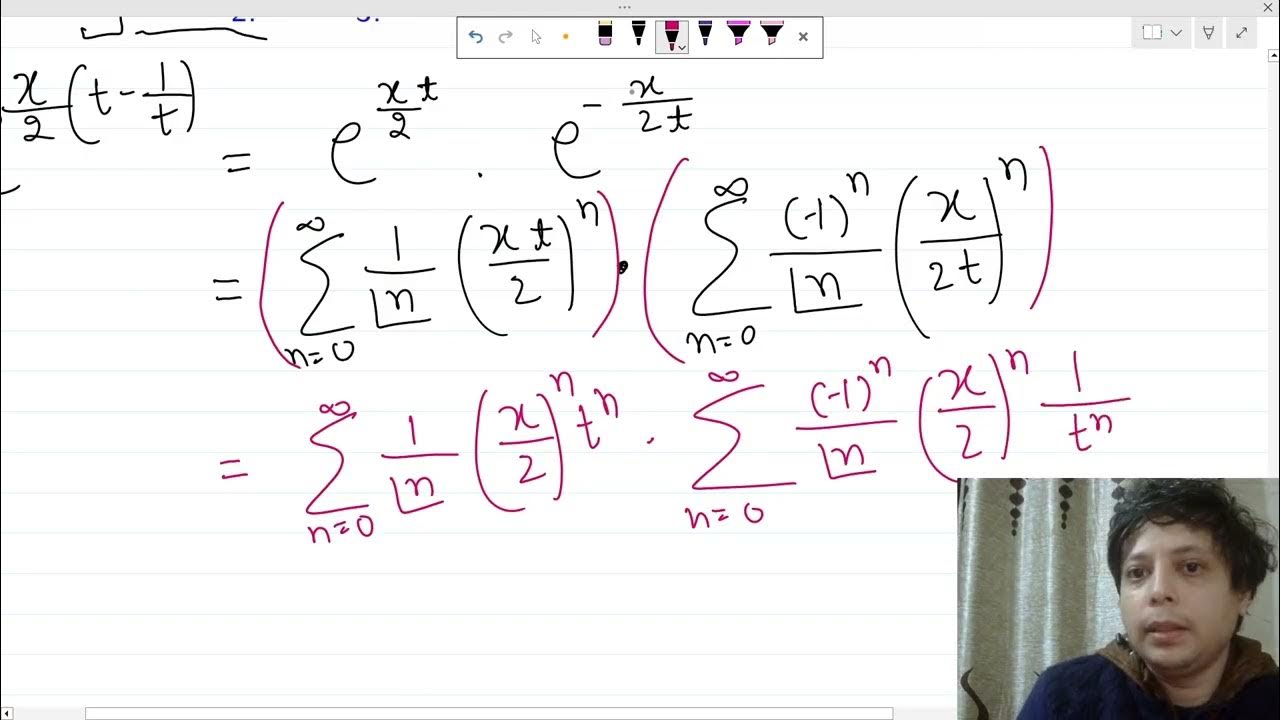 2. 3.
e^{\frac{x}{2}\left(t-\frac{1}{t}\right)} = e^{\frac{x}{2}t} . e^{-\frac{x}{2t}}
= \left(\sum_{n=0}^{\infty} \frac{1}{⌊n} \left(\frac{xt}{2}\right)^n\right) . \left(\sum_{n=0}^{\infty} \frac{(-1)^n}{⌊n} \left(\frac{x}{2t}\right)^n\right)
= \sum_{n=0}^{\infty} \frac{1}{⌊n} \left(\frac{x}{2}\right)^n t^n . \sum_{n=0}^{\infty} \frac{(-1)^n}{⌊n} \left(\frac{x}{2}\right)^n \frac{1}{t^n}